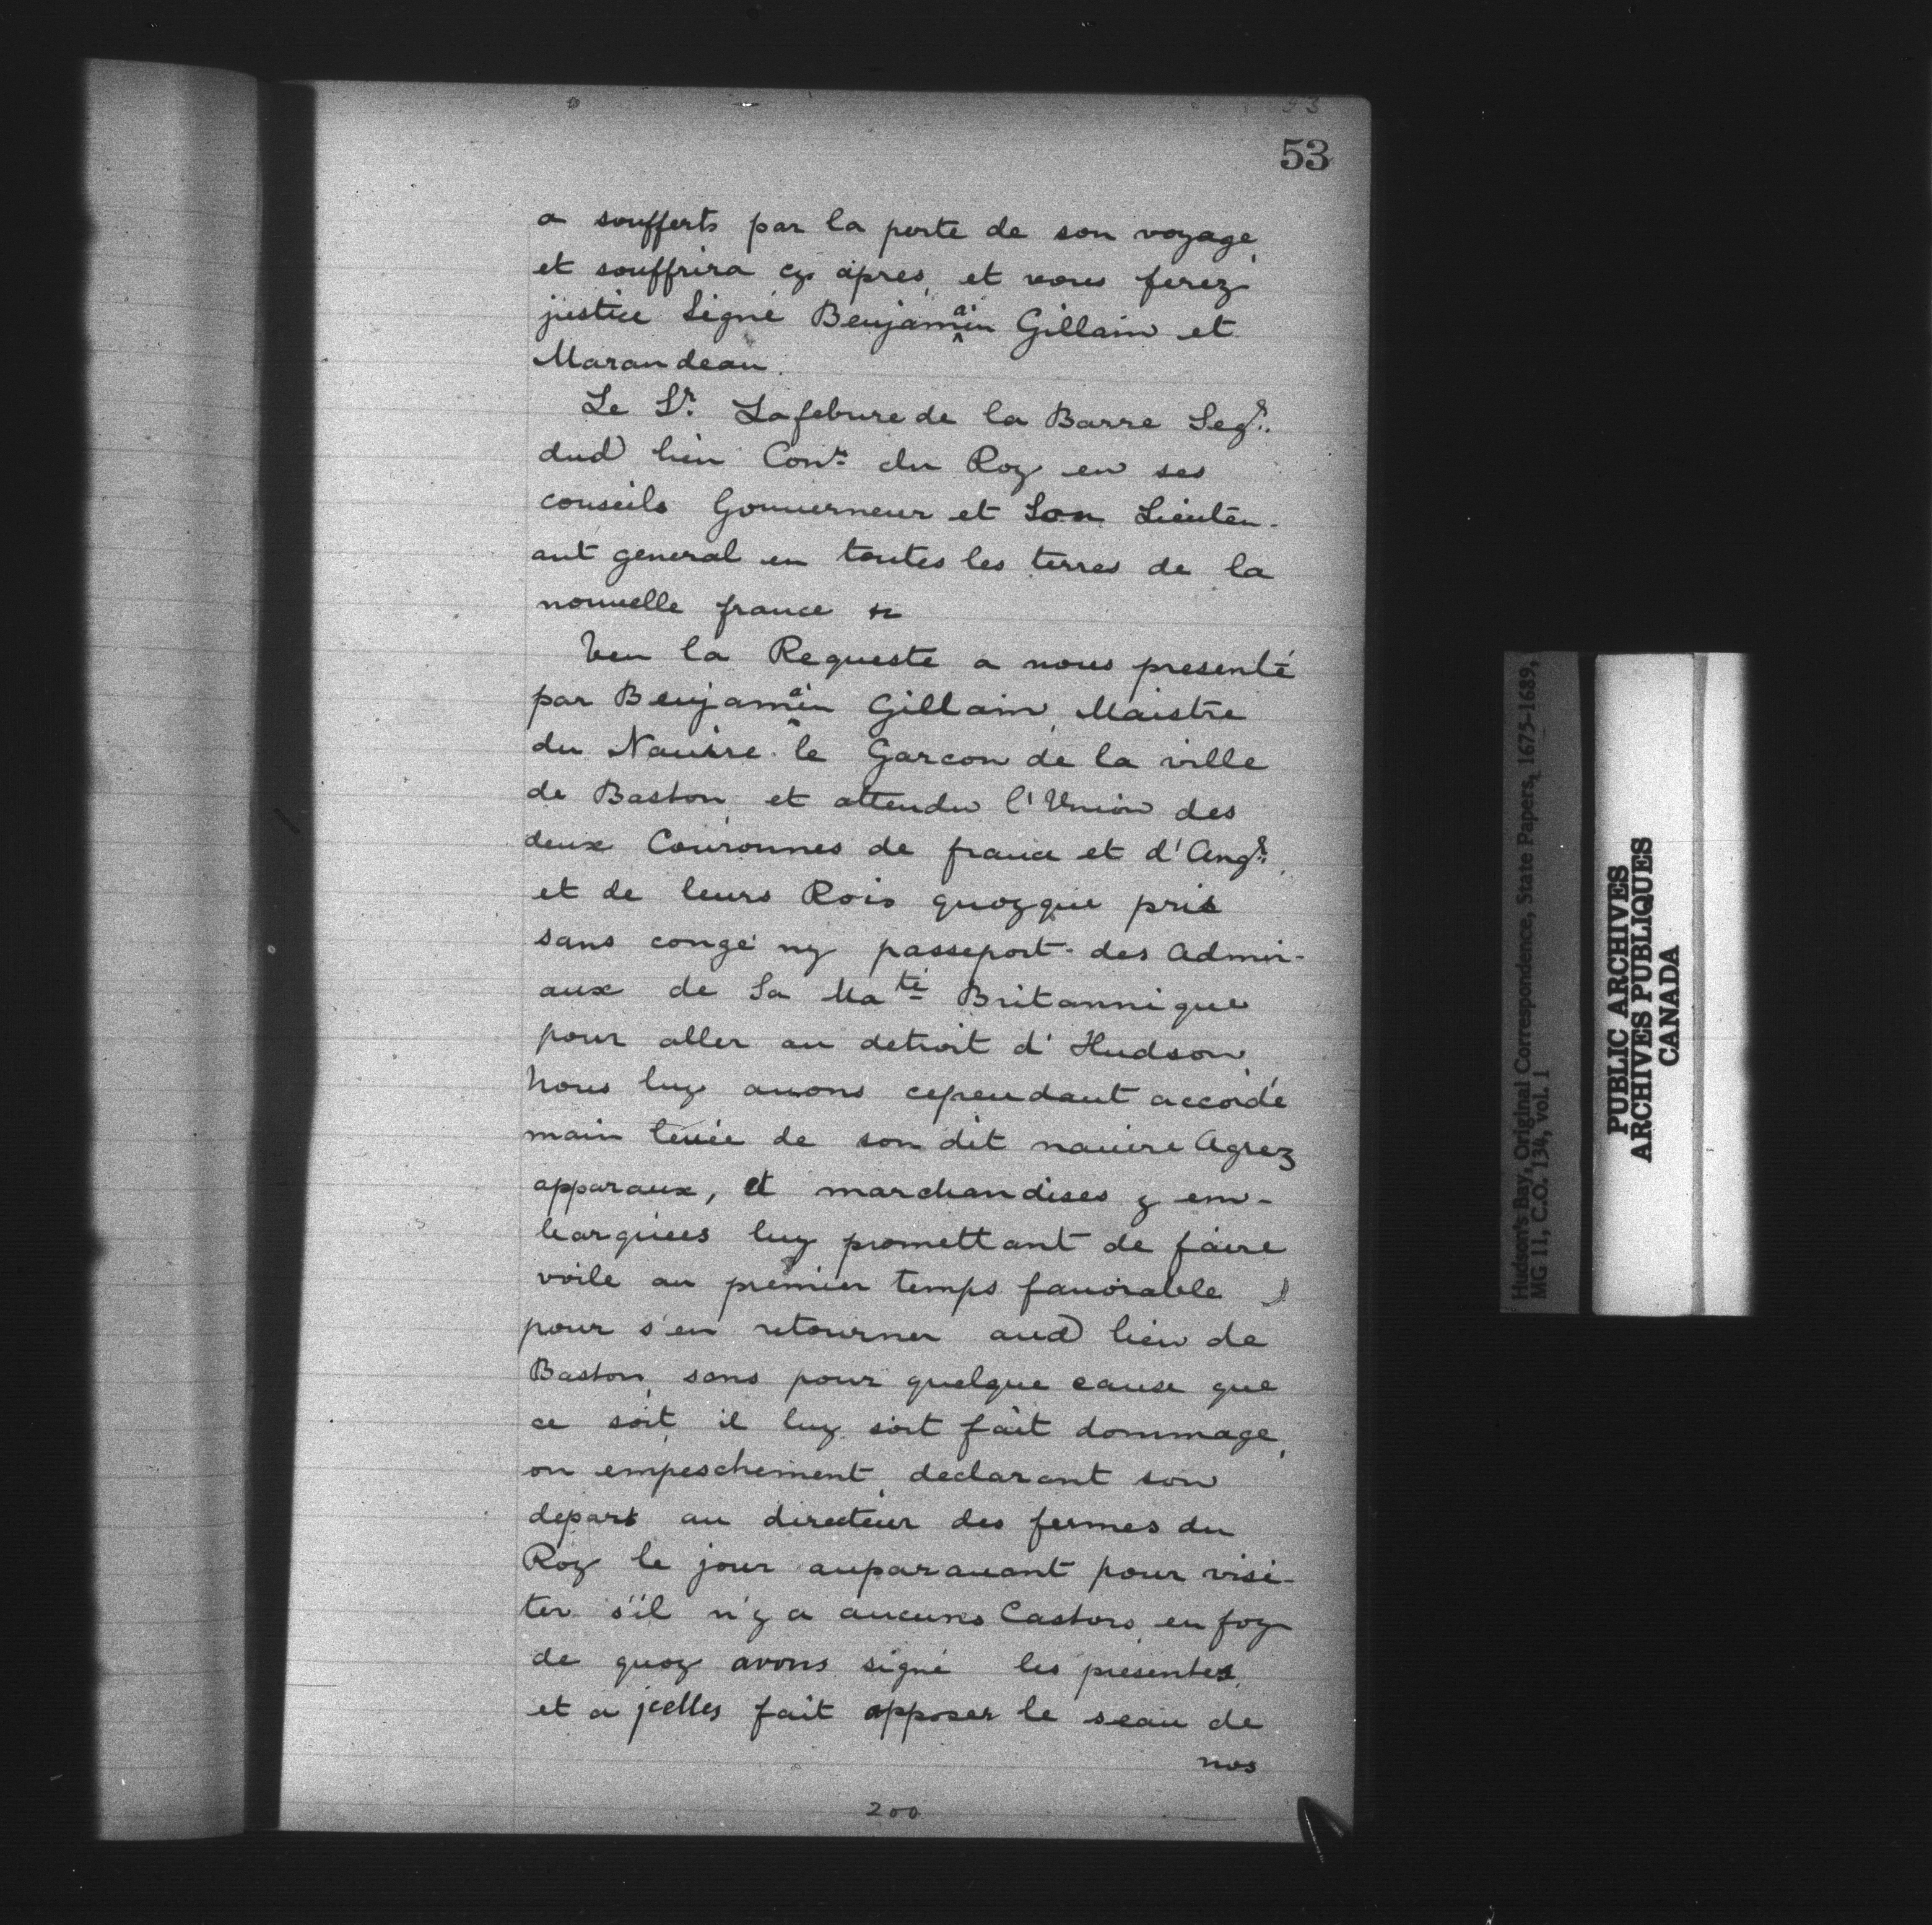 53
53
a soufferts par la perte de son voyage,
et souffrira cy apres, et vous ferez
justice Signé Benjamain Gillain et
Marandeau.
Le Sr. Lafebure de la Barre Segr.
dud lieu Conr. du Roy en ses
conseils Gouuerneur et Son Lieuten-
ant general en toutes les terres de la
nouuelle france &c
Veu la Requeste a nous presenté
par Benjamain Gillain, Maistre
du Nauire le Garcon de la ville
de Baston, et attendu l'Union des
deux Couronnes de france et d'Angre.
et de leurs Rois quoyque pris
sans congé ny passeport des Admir-
aux de Sa Maté Britannique
pour aller au detroit d'Hudson,
Nous luy auons cependant accordé
main leuée de son dit nauire Agrez
apparaux, et marchandises y em-
barquées luy promettant de faire
voile au premier temps fauorable
pour s'en retourner aud lieu de
Baston, sans pour quelque cause que
ce soit, il luy soit fait dommage,
ou empeschement, declarant son
depart au directeur des fermes du
Roy le jour auparauant pour visi-
ter s'il n'y a aucuns Castors, en foy
de quoy avons signé les presentes,
et a jcelles fait apposer le seau de
nos
200
Hudson's Bay, Original Correspondence, State Papers, 1675-1689,
MG 11, C.O. 134, vol. 1
PUBLIC ARCHIVES
ARCHIVES PUBLIQUES
CANADA